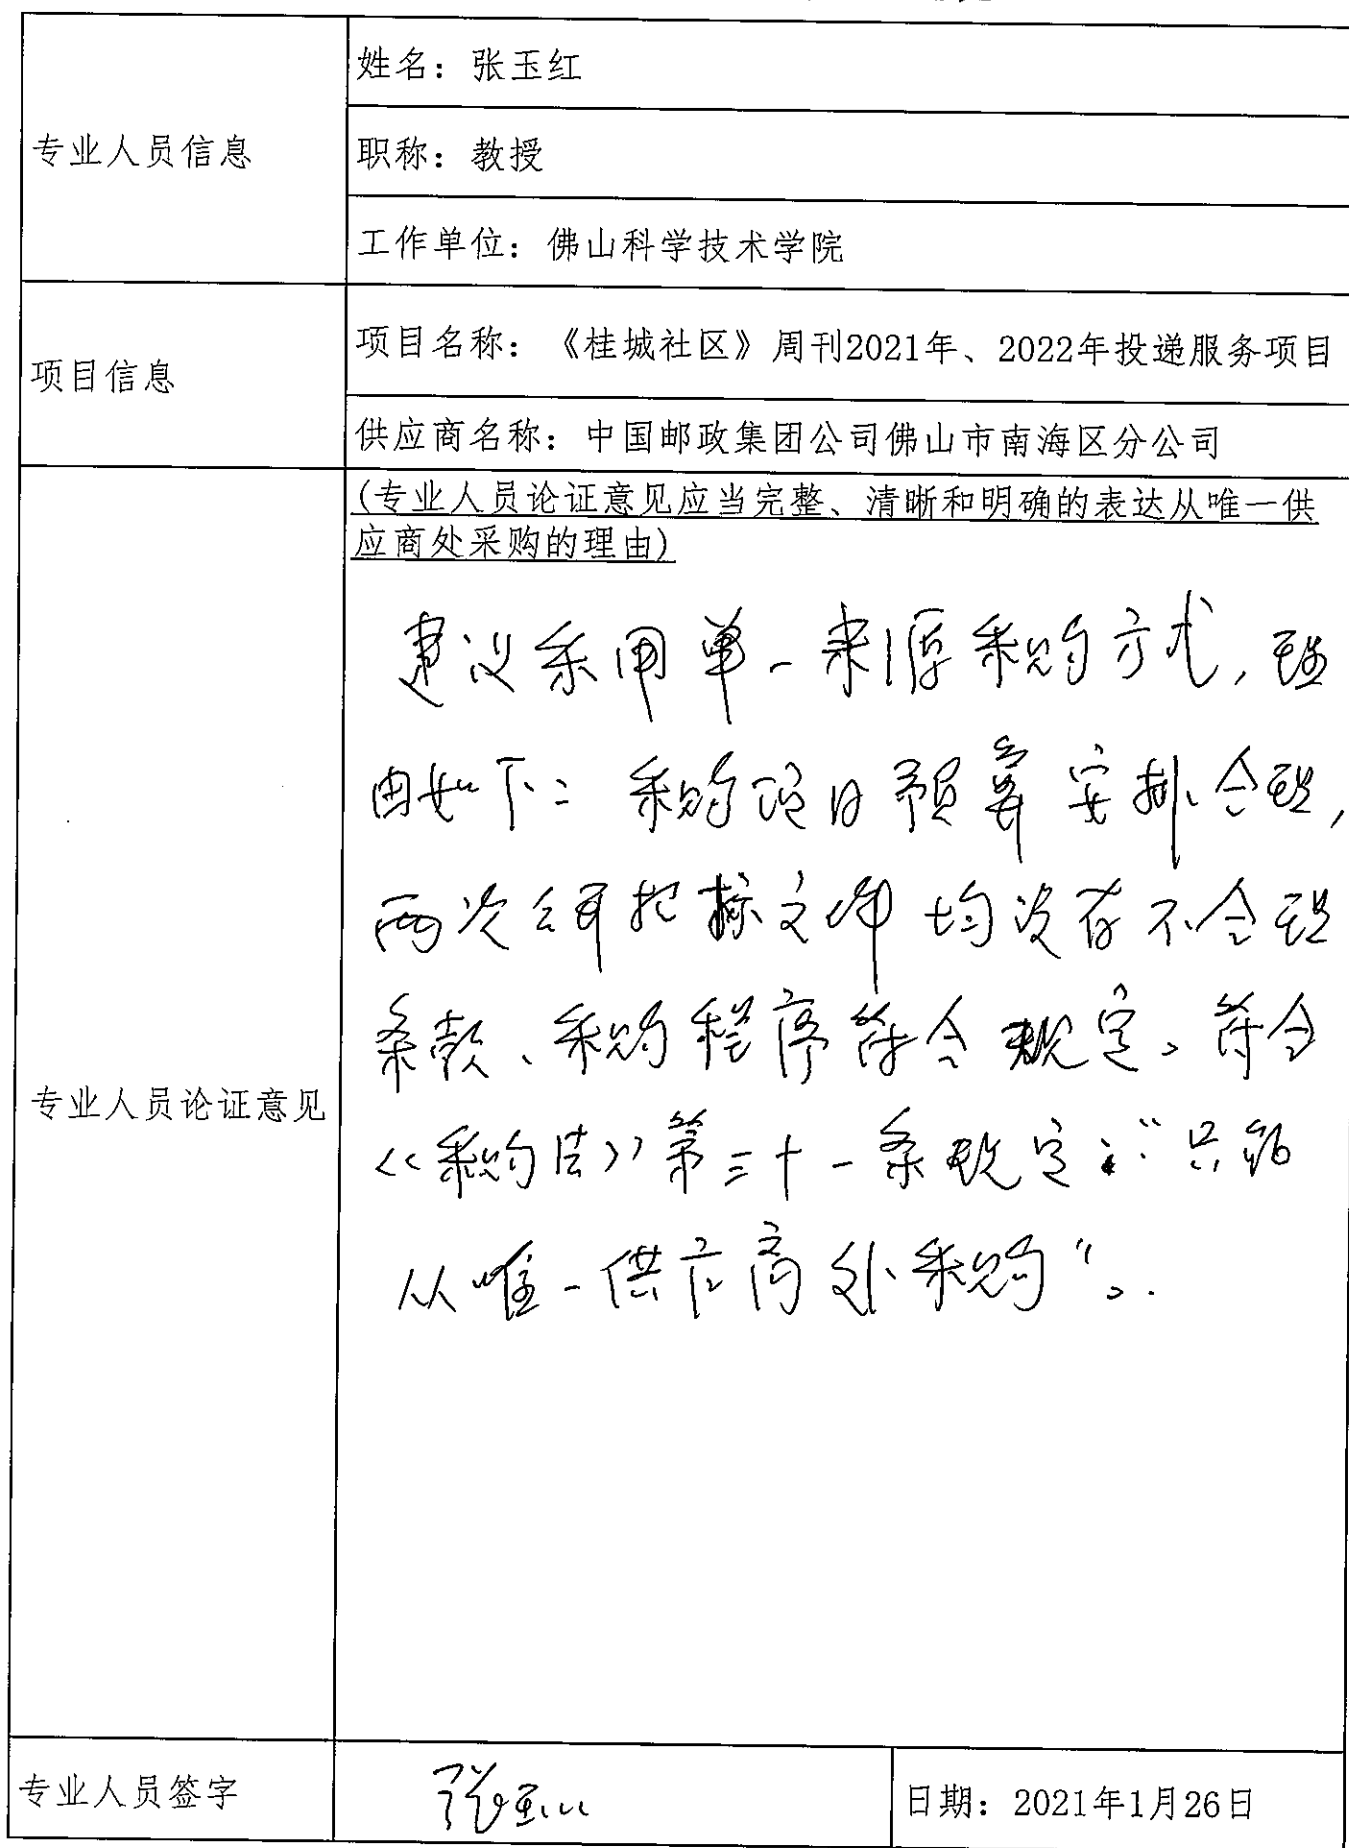 专业人员信息
姓名：张玉红
职称：教授
工作单位：佛山科学技术学院
项目信息
项目名称：《桂城社区》周刊2021年、2022年投递服务项目
供应商名称：中国邮政集团公司佛山市南海区分公司
专业人员论证意见
(专业人员论证意见应当完整、清晰和明确的表达从唯一供
应商处采购的理由)
建议采用单一来源采购方式，理
由如下：采购项目预算安排合理，
两次公开招标文件均没有不合理
条款、采购程序符合规定。符合
《采购法》第三十一条规定：“只能
从唯一供应商处采购”。
专业人员签字
张玉红
日期：2021年1月26日